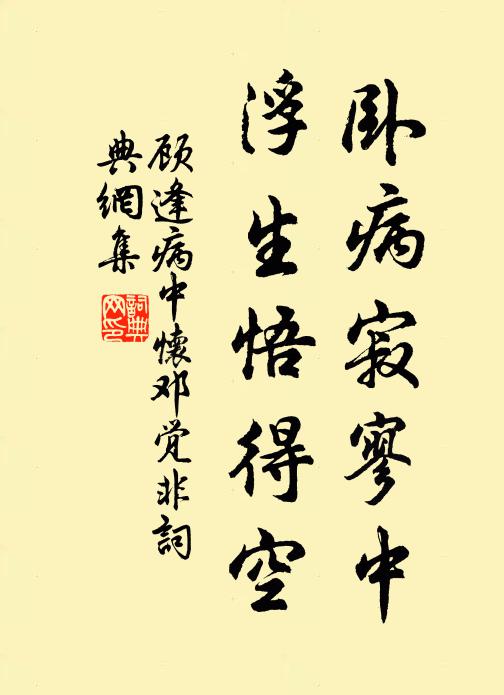 卧病寂寥中
浮生悟得空
顾逢病中懷邓觉非詞
典網集
詞典
网印